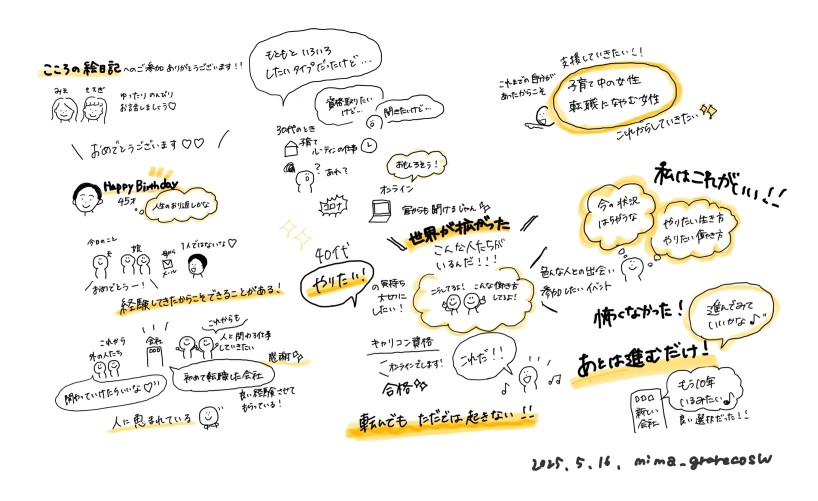 こころの絵日記 へのご参加ありがとうございます!!
みえ
もてぎ
ゆったり のんびり
お話しましょう♡
おめでとうございます♡♡
Happy Birthday
45才
人生のおり返しかな
今日のこと
夫
娘
母から
メール
1人ではないな♡
おめでとうー!
経験してきたからこそできることがある!
これから
外の人たち
会社
これからも
人に関わる仕事
していきたい
感謝
関わっていけたらいいな♡
初めて転職した会社
良い経験させて
もらっている!
人に恵まれている
もともと いろいろ
したいタイプだったけど…
資格取りたい
けど…
聞きたいけど…
30代のとき
子育て
ルーティンの仕事
?
あれ?
おもしろそう!
コロナ
オンライン
家からも聞けるじゃん
世界が拡がった
こんな人たちが
いるんだ!!!
40代
やりたい!
の気持ち
大切に
したい!
こうしてるよ!
こんな働き方
してるよ!
色んな人との出会い
参加したいイベント
キャリコン資格
オンラインでします!
合格
これだ!!
転んでも ただでは起きない!!
支援していきたい!!
これまでの自分が
あったからこそ
子育て中の女性
転職になやむ女性
これからしていきたい
私はこれがいい!!
今の状況
はちがうな
やりたい生き方
やりたい働き方
怖くなかった!
進んでみて
いいかな♪
あとは進むだけ!
新しい
会社
もう10年
いるみたい♪
良い選択だった!!
2025.5.16. mima_grarecosw